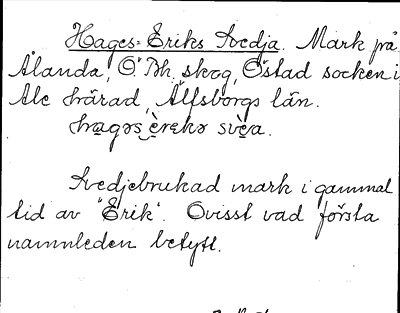 Hages-Eriks Svedja. Mark på
Ålanda, Ö. Bh. skog, Östad socken i
Ale härad, Älfsborgs län.
svèa.
Svedjebrukad mark i gammal
tid av "Erik". Ovisst vad första
namnleden betytt.